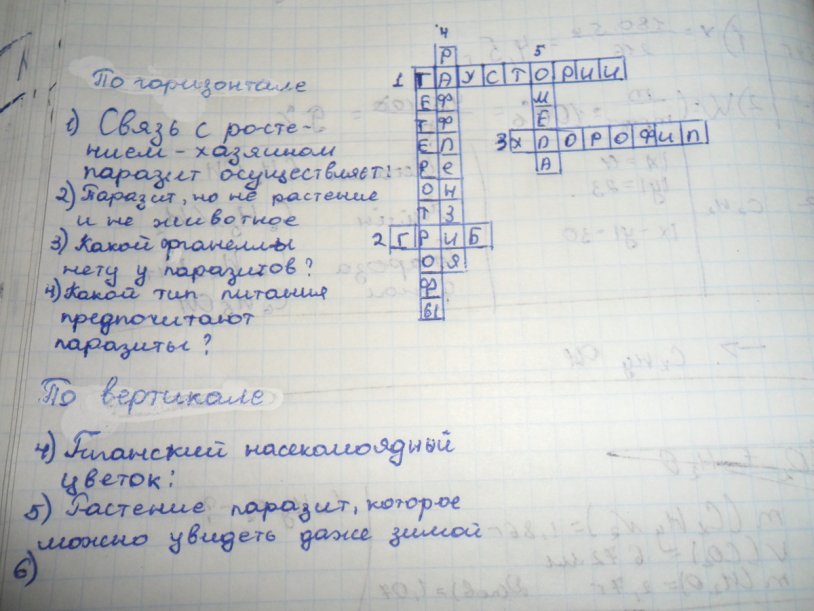 По горизонтале
1) Связь с росте-
нием - хазяином
паразит осуществляет:
2) Паразит, но не растение
и не животное
3) Какой органеллы
нету у паразитов?
4) Какой тип питания
предпочитают
паразиты?
4
5
1 ГАУСТОРИИ
3 ХЛОРОФИЛ
2 ГРИБ
РАФФЛЕНЗИЯ
ГЕТЕРОТРОФЫ
ОМЕЛА
По вертикале
4) Гиганский насекомоядный
цветок:
5) Растение паразит, которое
можно увидеть даже зимой
6)